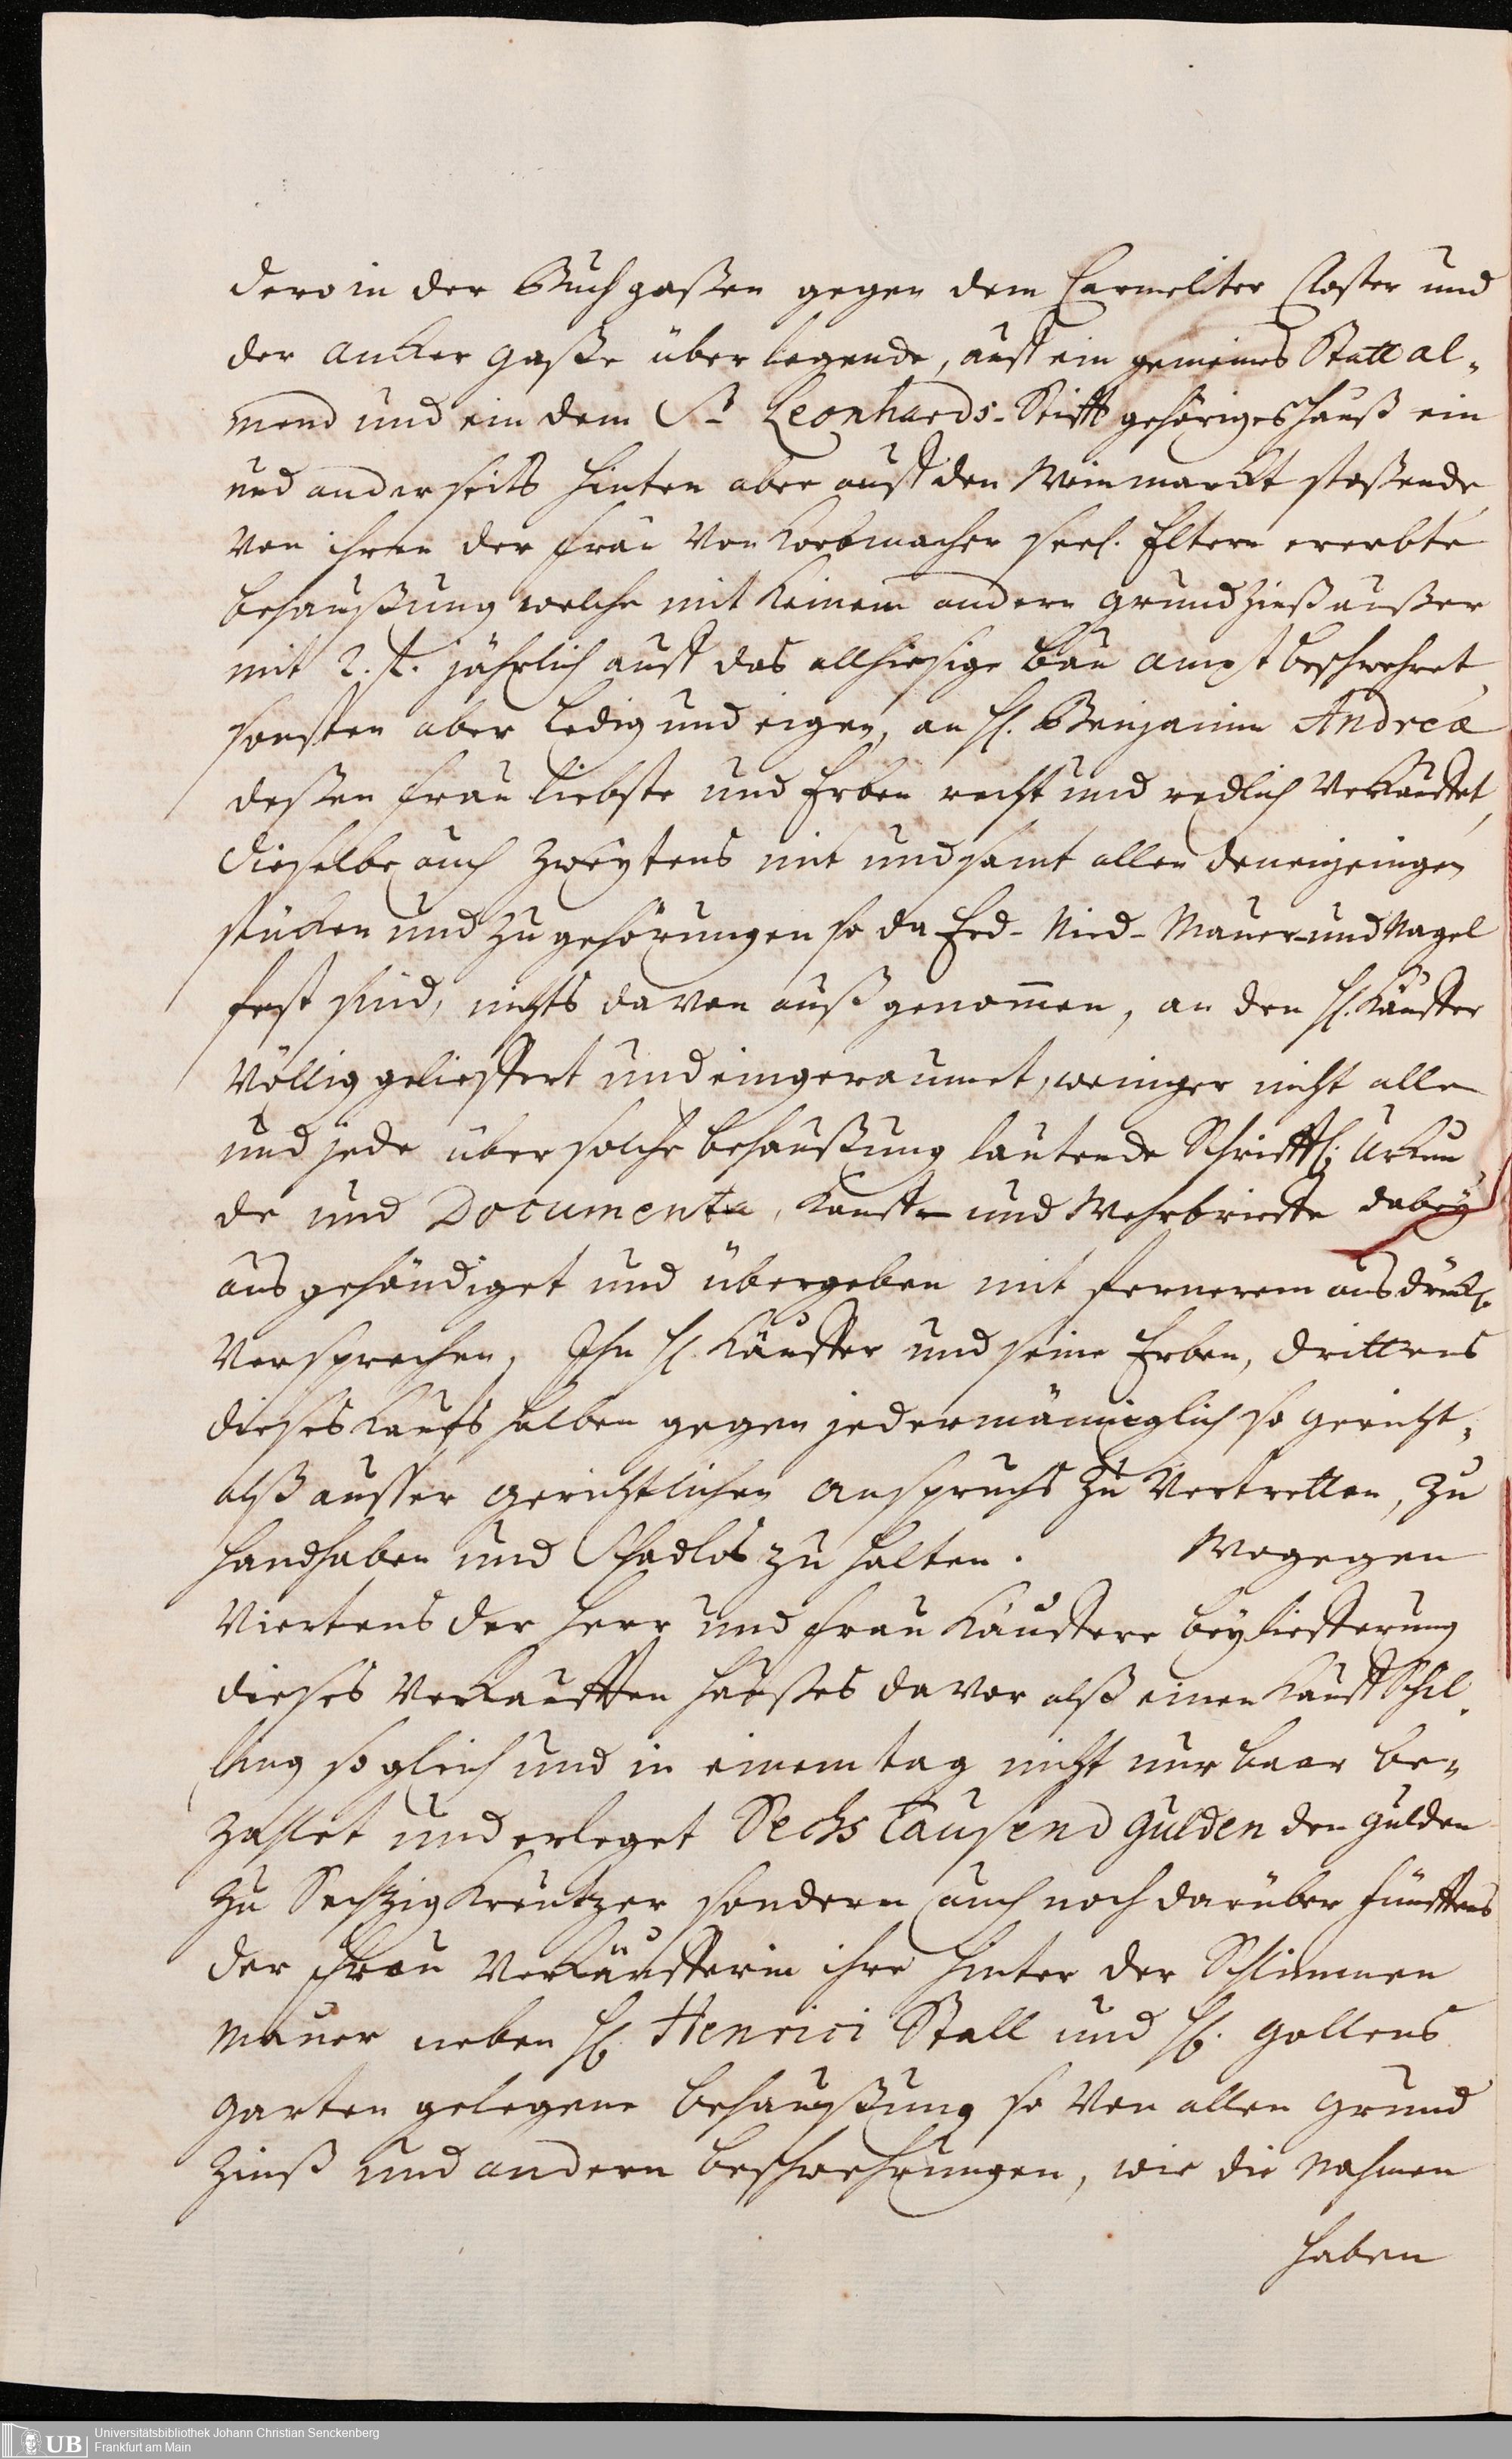 dero in der Buchgaßen gegen dem Carmeliter Closter und
der Ancker gaße über liegende, auff ein gemeines Statt al-
mend und ein dem St. Leonhards-Stifft gehöriges Hauß ein
und anderseits hinten aber auff den Weinmarckt stoßende
von ihren der Frau von Korbmacher seel. Eltern ererbte
behaußung welche mit keinem andern grundzinß außer
mit 2. ft. jährlich auff das allhiesige Bau ampt beschwehret
sonsten aber ledig und eigen, an H. Benjamin Andreä
deßen Frau liebste und Erben recht und redlich verkauffet,
dieselbe auch zweytens mit und samt allen denenjenigen
stücken und zugehörungen so da Erd- Nied- Mauer- und Nagel
fest sind, nichts davon außgenom̄en, an den H. Käuffer
völlig gelieffert und eingeraumet, weniger nicht alle
und jede über solche behaußung lautende Schrifftl. Urkun
de und Documenta, Kauff- und Wehrbrieffe dabey
ausgehändiget und übergeben mit fernerem ausdrückl.
Versprechen, Ihn H. Käuffer und seine Erben, drittens
dieses Kaufs halben gegen jedermänniglich so gericht-
alß ausser gerichtlichen Anspruchs zu Vertretten, zu
handhaben und Schadlos zu halten. Wogegen
Viertens der Herr und Frau Käuffere bey lieferung
dieses verkaufften Haußes davor alß einen Kauffschil
ling sogleich und in einem tag nicht nur baar be-
zahlet und erleget Sechs Tausend Gulden den Gulden
zu Sechzig Kreutzer sondern auch noch darüber fünfftens
der Frau Verkäufferin ihre hinter der Schlimmen
Mauer neben H. Henrici Stall und H. Gollens
Garten gelegene behaußung so von allen Grund
Zinß und andern beschwehrungen, wie die Nahmen
haben
UB
Universitätsbibliothek Johann Christian Senckenberg
Frankfurt am Main